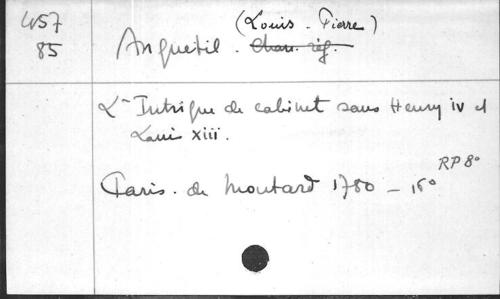 457 (Louis - Pierre)
85 Anquetil. Chan. rég.
L'Intrigue de cabinet sous Henry iv et
Louis xiii.
RP 8°
Paris. de Moutard 1780 - 16°